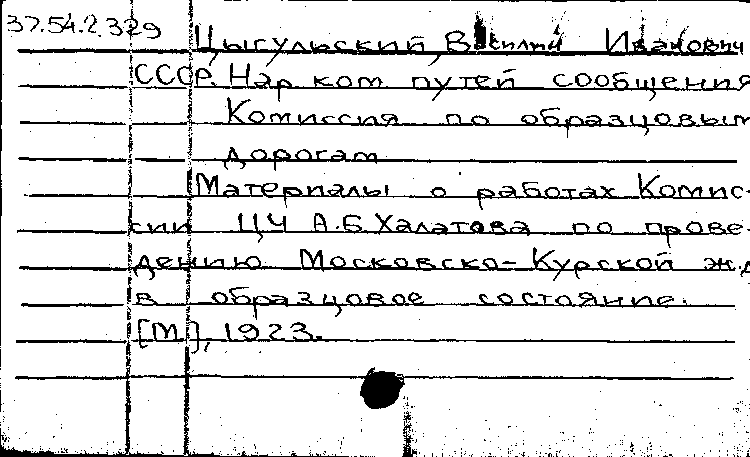 37.54.2.329
Цыгульский, Василий Иванович
СССР. Нар ком путей сообщения
Комиссия по образцовым
дорогам
Материалы о работах Комис-
сии ЦЧ А.Б. Халатова по прове-
дению Московско-Курской ж.д
в образцовое состояние.
[М], 1923.